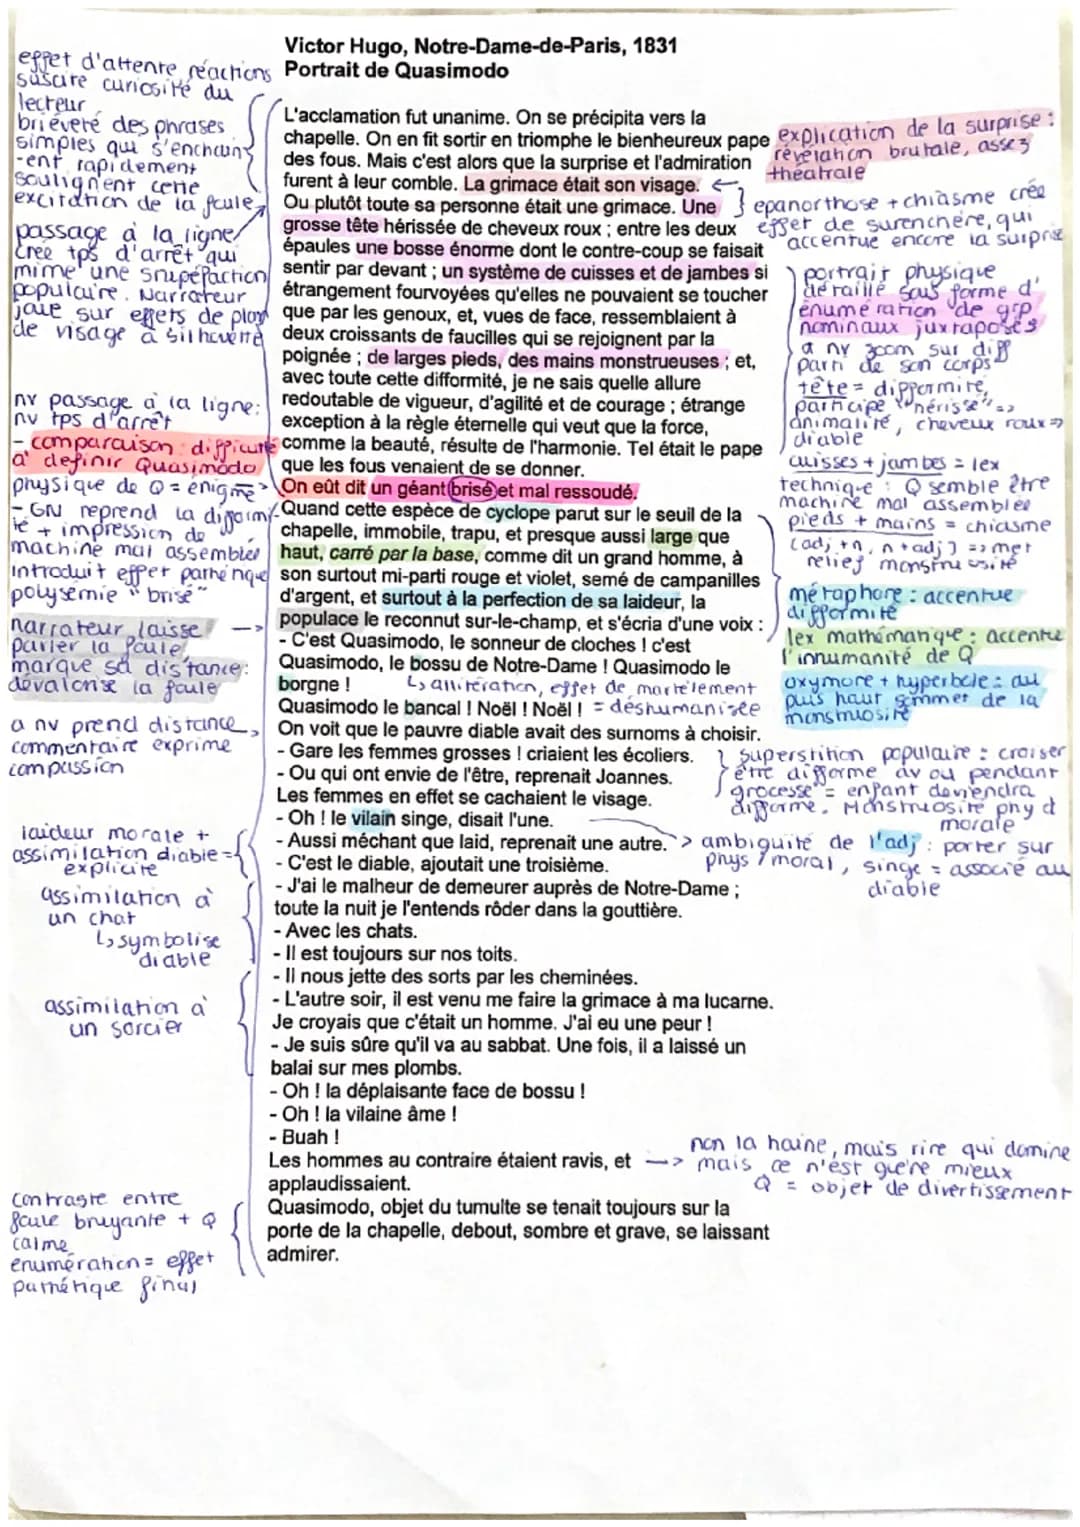 Victor Hugo, Notre-Dame-de-Paris, 1831
Portrait de Quasimodo
L'acclamation fut unanime. On se précipita vers la
chapelle. On en fit sortir en triomphe le bienheureux pape
des fous. Mais c'est alors que la surprise et l'admiration
furent à leur comble. La grimace était son visage.
Ou plutôt toute sa personne était une grimace. Une
grosse tête hérissée de cheveux roux ; entre les deux
épaules une bosse énorme dont le contre-coup se faisait
sentir par devant ; un système de cuisses et de jambes si
étrangement fourvoyées qu'elles ne pouvaient se toucher
que par les genoux, et, vues de face, ressemblaient à
deux croissants de faucilles qui se rejoignent par la
poignée ; de larges pieds, des mains monstrueuses ; et,
avec toute cette difformité, je ne sais quelle allure
redoutable de vigueur, d'agilité et de courage ; étrange
exception à la règle éternelle qui veut que la force,
comme la beauté, résulte de l'harmonie. Tel était le pape
que les fous venaient de se donner.
On eût dit un géant brisé et mal ressoudé.
Quand cette espèce de cyclope parut sur le seuil de la
chapelle, immobile, trapu, et presque aussi large que
haut, carré par la base, comme dit un grand homme, à
son surtout mi-parti rouge et violet, semé de campanilles
d'argent, et surtout à la perfection de sa laideur, la
populace le reconnut sur-le-champ, et s'écria d'une voix :
- C'est Quasimodo, le sonneur de cloches ! c'est
Quasimodo, le bossu de Notre-Dame ! Quasimodo le
borgne !
Quasimodo le bancal ! Noël ! Noël !
On voit que le pauvre diable avait des surnoms à choisir.
- Gare les femmes grosses ! criaient les écoliers.
- Ou qui ont envie de l'être, reprenait Joannes.
Les femmes en effet se cachaient le visage.
- Oh ! le vilain singe, disait l'une.
- Aussi méchant que laid, reprenait une autre.
- C'est le diable, ajoutait une troisième.
- J'ai le malheur de demeurer auprès de Notre-Dame ;
toute la nuit je l'entends rôder dans la gouttière.
- Avec les chats.
- Il est toujours sur nos toits.
- Il nous jette des sorts par les cheminées.
- L'autre soir, il est venu me faire la grimace à ma lucarne.
Je croyais que c'était un homme. J'ai eu une peur !
- Je suis sûre qu'il va au sabbat. Une fois, il a laissé un
balai sur mes plombs.
- Oh ! la déplaisante face de bossu !
- Oh ! la vilaine âme !
- Buah !
Les hommes au contraire étaient ravis, et
applaudissaient.
Quasimodo, objet du tumulte se tenait toujours sur la
porte de la chapelle, debout, sombre et grave, se laissant
admirer.
effet d'attente réactions
suscite curiosité du
lecteur
brièveté des phrases
simples qui s'enchain
-ent rapidement
soulignent cette
excitation de la foule
passage à la ligne
crée tps d'arrêt qui
mime une stupéfaction
populaire. Narrateur
joue sur effets de
de visage à silhouette
nv passage à la ligne:
nv tps d'arrêt
- comparaison : difficulté
à définir Quasimodo
physique de Q = énigme
- GN reprend la difformi-
té + impression de
machine mal assemblée
introduit effet pathétique
polysémie "brisé"
narrateur laisse -->
parler la foule
marque sa distance:
dévalorise la foule
a nv prend distance,
commentaire exprime
compassion
laideur morale +
assimilation diable =
explicite
assimilation à
un chat
↳ symbolise
diable
assimilation à
un sorcier
contraste entre
foule bruyante + Q
calme
énumération = effet
pathétique final
explication de la surprise :
révélation brutale, assez
théâtrale
épanorthose + chiasme crée
effet de surenchère, qui
accentue encore la surprise
portrait physique
détaillé sous forme d'
énumération de grp
nominaux juxtaposés
a nv zoom sur diff
parti de son corps
tête = difformité,
participe "hérissé" =>
animalité, cheveux roux =>
diable
cuisses + jambes = lex
technique : Q semble être
machine mal assemblée
pieds + mains = chiasme
(adj + n, n + adj) => met
relief monstruosité
métaphore : accentue
difformité
lex mathématique : accentue
l'innumanité de Q
oxymore + hyperbole : au
plus haut sommet de la
monstruosité
↳ allitération, effet de martèlement
= déshumanisée
superstition populaire : croiser
être difforme av ou pendant
grocesse = enfant deviendra
difforme. Monstruosité phy et
morale
> ambiguïté de l'adj : porter sur
phys / moral, singe = associé au
diable
non la haine, mais rire qui domine
--> mais ce n'est guère mieux
Q = objet de divertissement